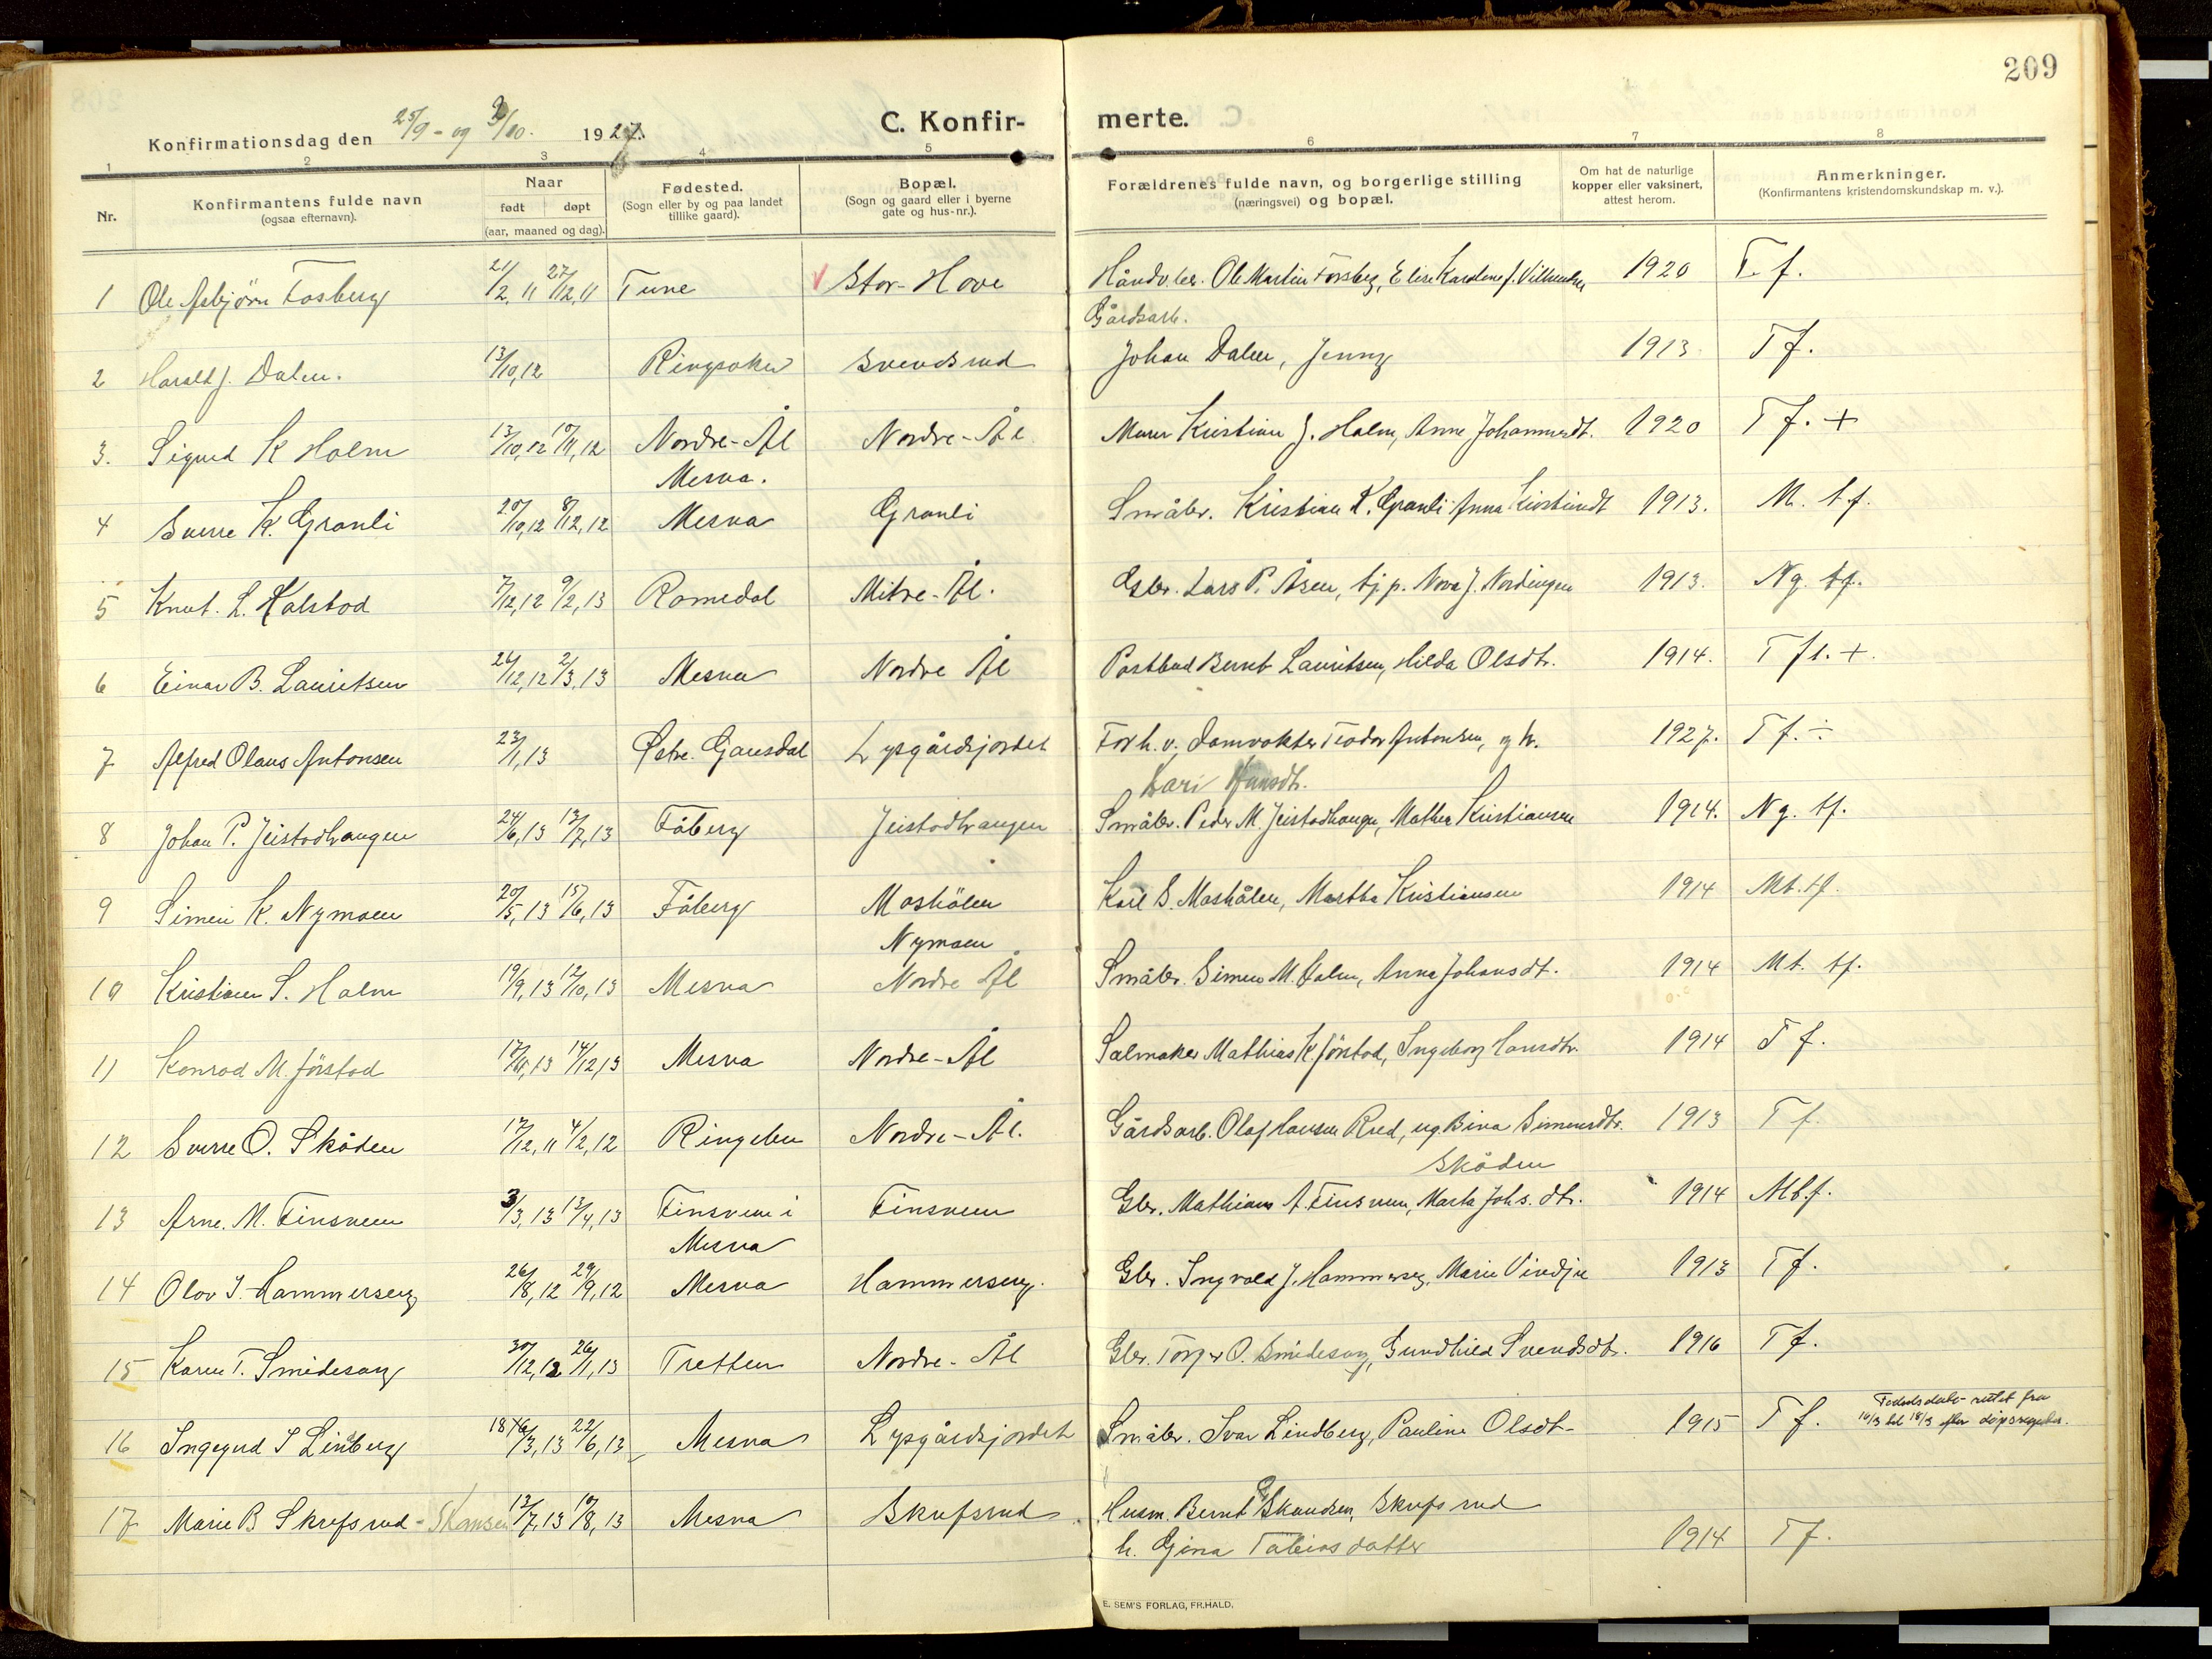 209
Konfirmationsdag den 25/9 - og 9/10. 1927.
C. Konfir-
merte.
1 2 3 4 5 6 7 8
Nr. Konfirmantens fulde navn (ogsaa efternavn). Naar født døpt (aar, maaned og dag). Fødested. (Sogn eller by og paa landet tillike gaard). Bopæl. (Sogn og gaard eller i byerne gate og hus-nr.). Forældrenes fulde navn, og borgerlige stilling (næringsvei) og bopæl. Om hat de naturlige kopper eller vaksinert, attest herom. Anmerkninger. (Konfirmantens kristendomskundskap m. v.).
1 Ole Asbjörn Fosberg 21/2, 11 27/12, 11 Tune Stor-Hove Ole Martin Forsberg, Elise Karoline 1920 T. f.
Gårdsarb.
2 Harald J. Dalen. 13/10, 12 Ringsaker Svendsrud Johan Dalen, Jenny 1913 T f.
3. Sigurd K Holm 13/10, 12 10/11, 12 Nordre-Ål Nordre-Ål Murer Kristian J. Holm, Anne Johannesdt. 1920 T f. +
Mesna.
4 Sverre K. Granli 20/10, 12 8/12, 12 Mesna Granli Småbr. Kristian K. Granli Anna 1913. M. t.f.
5 Knut. L. Kalstad 7/12, 12 9/2, 13 Romedal Mitre-Ål. Gbr. Lars P. Åsen, tj.p. Nora J. Nordengen 1913. Ng. tf.
6 Einar B. Lauritsen 26/12, 12 2/3, 13 Mesna Nordre Ål Postbud Bernt Lauritsen, Hilda Olsdtr. 1914. T fl. +.
7 Alfred Olaus Antonsen 23/1, 13 Østre. Gausdal Lysgårdsjordet Forh. v. Damvokter Teodor Antonsen, og h. 1927. T f. ÷
Kari Hansdt.
8 Johan P. Jeistadhaugen 24/6, 13 13/7, 13 Fåberg Jeistadhaugen Småbr. Peder M. Jeistadhaugen, Mathea Kristiansen 1914. Ng. tf.
9 Simen K. Nymoen 20/5, 13 15/6, 13 Fåberg Moshölen Karl S. Moshålen, Martha Kristiansen 1914 Mt. tf.
Nymoen
10 Kristian S. Holm 19/9, 13 12/10, 13 Mesna Nordre Ål Småbr. Simen M. Holm, Anna Johansdt. 1914 Mt. tf.
11 Konrad M. Jörstad 14/12, 13 Mesna Nordre-Ål Salmaker Mathias K. Jörstad, Ingeborg Hansdtr. 1914 T f.
12 Sverre O. Skåden 17/12, 11 4/2, 12 Ringebu Nordre-Ål. Gårdsarb. Olaf Hansen Rud, ug. Bina Simensdtr. 1913 T f.
Skåden
13 Arne. M. Finsveen 3/3, 13 13/4, 13 Finsveen i Finsveen Gbr. Mathias A. Finsveen, Marta Johs. dtr. 1914 Mt.f.
Mesna
14 Olav I. Hammerseng 26/8, 12 29/9, 12 Mesna Hammerseng. Gbr. Ingvald J. Hammerseng, Marie Vindju 1913 T f.
15 Karen T. Smidesang 30/12, 12 26/1, 13 Tretten Nordre-Ål Gbr. Torger O. Smidesang, Gundhild Svendsdtr. 1916 T f.
16 Ingegerd I Lindberg 18 16/3, 13 22/6, 13 Mesna Lysgårdsjordet Småbr. Ivar Lindberg, Pauline Olsdt. 1915 T f. Fødselsdato rettet fra
16/3 til 18/3 efter döpsregister.
17 Marie B Skrefsrud - Skansen 13/7, 13 10/8, 13 Mesna Skrefsrud Husm. Bernt Skandsen, Skrefsrud
h. Gina Tobiasdatter 1914 T f.
E. SEM'S FORLAG, FR.HALD.